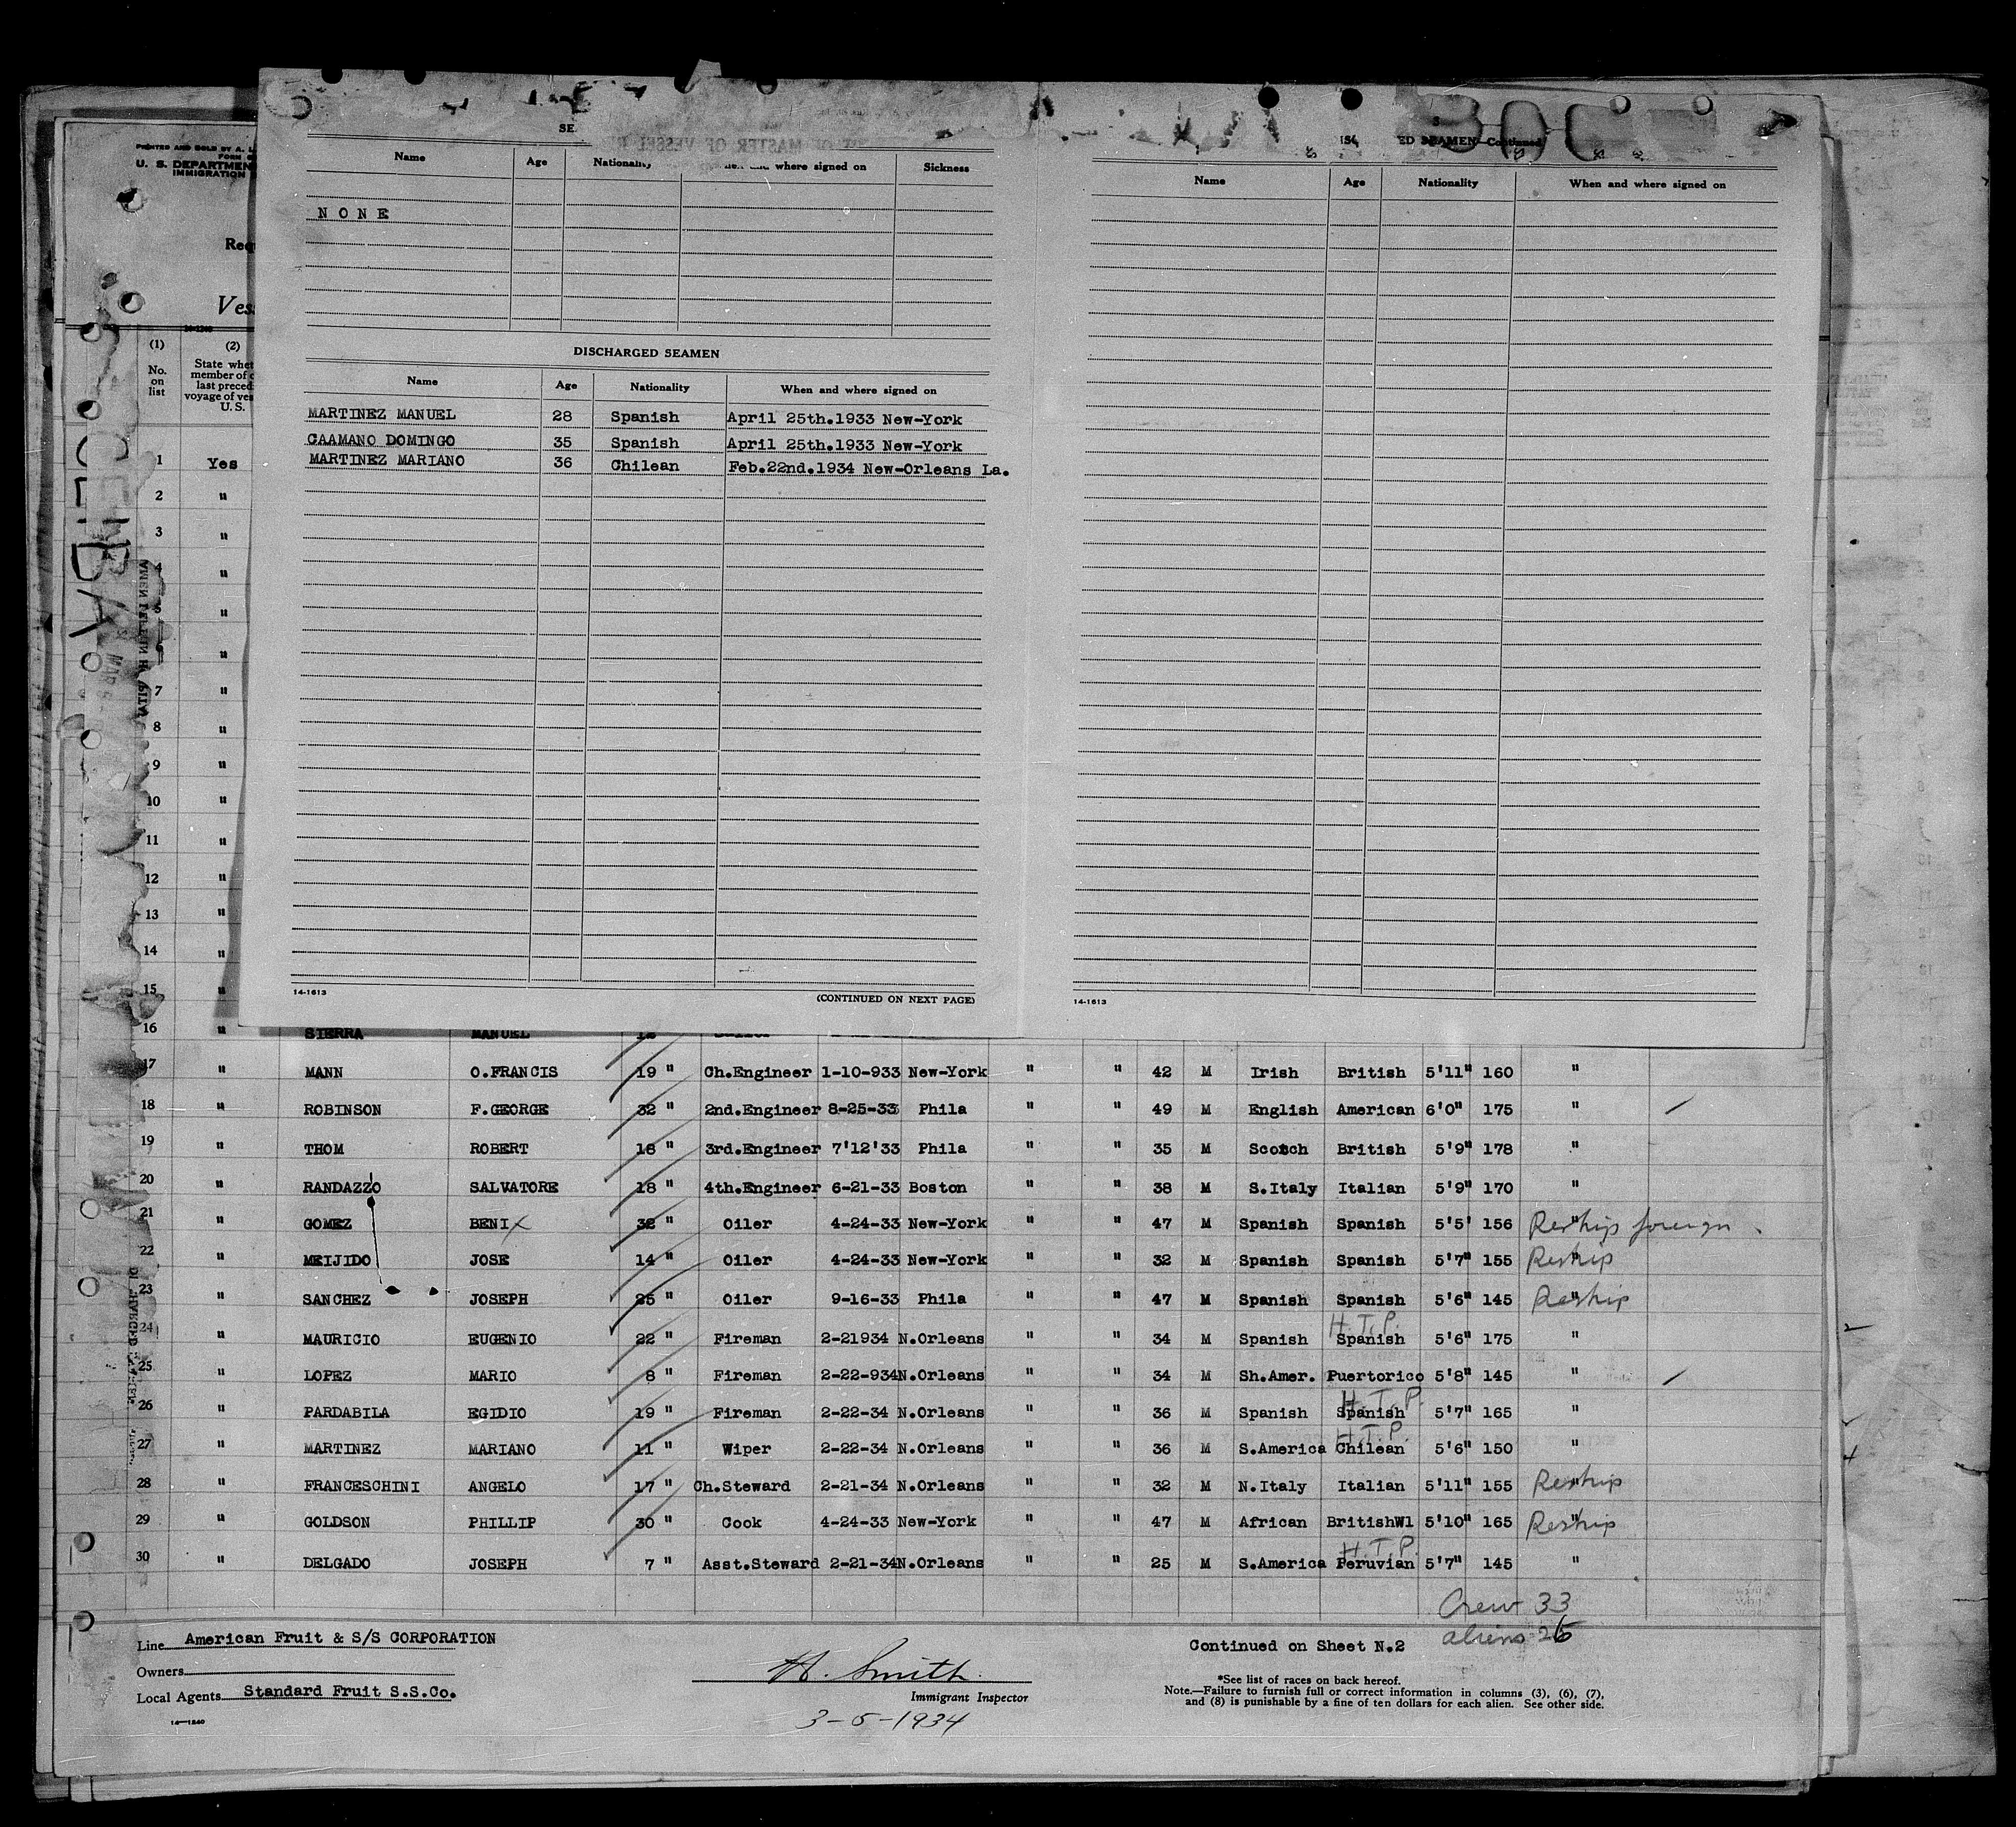 PRINTED AND SOLD BY A. L
U. S. DEPARTMEN
IMMIGRATION
Req
Ves
(1) No. on list
(2) State whet member of last preced voyage of ves U.S.
1 Yes
2 "
3 "
4 "
5 "
6 "
7 "
8 "
9 "
10 "
11 "
12 "
13 "
14 "
15 "
SE
Name Age Nationality where signed on Sickness
N O N E
DISCHARGED SEAMEN
Name Age Nationality When and where signed on
MARTINEZ MANUEL 28 Spanish April 25th.1933 New-York
CAAMANO DOMINGO 35 Spanish April 25th.1933 New-York
MARTINEZ MARIANO 36 Chilean Feb.22nd.1934 New-Orleans La.
14-1613
(CONTINUED ON NEXT PAGE)
ED SEAMEN—Continued
Name Age Nationality When and where signed on
14-1613
16 " SIERRA MANUEL
17 " MANN O.FRANCIS 19 " Ch.Engineer 1-10-933 New-York " " 42 M Irish British 5'11" 160 "
18 " ROBINSON F.GEORGE 32 " 2nd.Engineer 8-25-33 Phila " " 49 M English American 6'0" 175 "
19 " THOM ROBERT 18 " 3rd.Engineer 7'12'33 Phila " " 35 M Scotch British 5'9" 178 "
20 " RANDAZZO SALVATORE 18 " 4th.Engineer 6-21-33 Boston " " 38 M S.Italy Italian 5'9" 170 "
21 " GOMEZ BENI 32 " Oiler 4-24-33 New-York " " 47 M Spanish Spanish 5'5' 156 " Reship foreign
22 " MEIJIDO JOSE 14 " Oiler 4-24-33 New-York " " 32 M Spanish Spanish 5'7" 155 " Reship
23 " SANCHEZ JOSEPH 25 " Oiler 9-16-33 Phila " " 47 M Spanish Spanish 5'6" 145 " Reship
H.T.P.
24 " MAURICIO EUGENIO 22 " Fireman 2-21934 N.Orleans " " 34 M Spanish Spanish 5'6" 175 "
25 " LOPEZ MARIO 8 " Fireman 2-22-934N.Orleans " " 34 M Sh.Amer. Puertorico 5'8" 145 "
H.T.P.
26 " PARDABILA EGIDIO 19 " Fireman 2-22-34 N.Orleans " " 36 M Spanish Spanish 5'7" 165 "
H.T.P.
27 " MARTINEZ MARIANO 11 " Wiper 2-22-34 N.Orleans " " 36 M S.America Chilean 5'6" 150 "
28 " FRANCESCHINI ANGELO 17 " Ch.Steward 2-21-34 N.Orleans " " 32 M N.Italy Italian 5'11" 155 " Reship
29 " GOLDSON PHILLIP 30 " Cook 4-24-33 New-York " " 47 M African BritishWl 5'10" 165 " Reship
H.T.P.
30 " DELGADO JOSEPH 7 " Asst.Steward 2-21-34N.Orleans " " 25 M S.America Peruvian 5'7" 145 "
Crew 33
aliens 26
Line American Fruit & S/S CORPORATION
Owners
Local Agents Standard Fruit S.S.Co.
14—1240
H. Smith
Immigrant Inspector
3-5-1934
Continued on Sheet N.2
*See list of races on back hereof.
Note.—Failure to furnish full or correct information in columns (3), (6), (7),
and (8) is punishable by a fine of ten dollars for each alien. See other side.